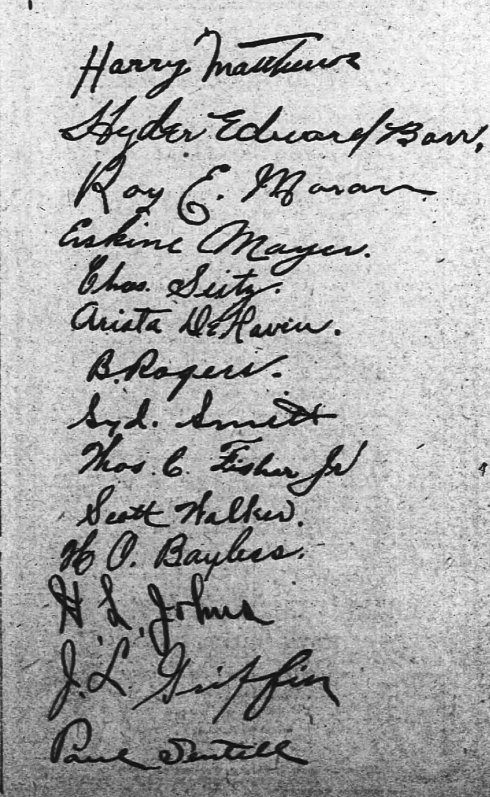 Harry Matthews
Hyder Edward Barr,
Roy E. Moran.
Erskine Mayer.
Chas. Seitz.
Arista DeHaven.
B. Rogers.
Syd. Smith
Thos. C. Fisher Jr
Scott Walker.
H O. Bayless.
H. L. Johns
J. L. Griffin
Paul Sentell